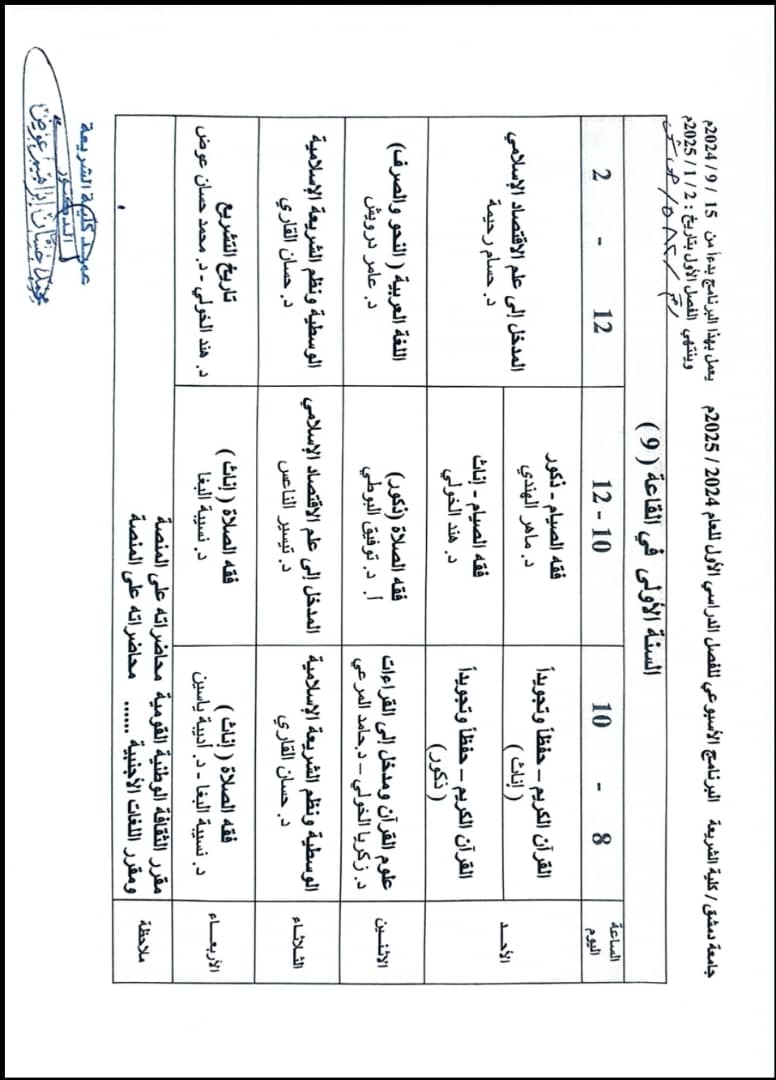 جامعة دمشق / كلية الشريعة البرنامج الأسبوعي للفصل الدراسي الأول للعام 2024 / 2025م يعمل بهذا البرنامج بدءاً من 15 / 9 / 2024م
وينتهي الفصل الأول بتاريخ : 2 / 1 / 2025م
السنة الأولى في القاعة ( 9 )
الساعة
اليوم
8 - 10
10 - 12
12 - 2
الأحد
القرآن الكريم – حفظاً وتجويداً
( إناث )
فقه الصيام - ذكور
د. ماهر الهندي
المدخل إلى علم الاقتصاد الإسلامي
د. حسام رحيمة
القرآن الكريم – حفظاً وتجويداً
( ذكور )
فقه الصيام - إناث
د. هند الخولي
الاثنين
علوم القرآن ومدخل إلى القراءات
د. زكريا الخولي – د.حامد المرعي
فقه الصلاة (ذكور)
أ. د. توفيق البوطي
اللغة العربية ( النحو والصرف)
د. عامر درويش
الثلاثاء
الوسطية ونظم الشريعة الإسلامية
د. حسان القاري
المدخل إلى علم الاقتصاد الإسلامي
د. تيسير الناعس
الوسطية ونظم الشريعة الإسلامية
د. حسان القاري
الأربعاء
فقه الصلاة ( إناث )
د. نسيبة البغا - د. أديبة ياسين
فقه الصلاة ( إناث )
د. نسيبة البغا
تاريخ التشريع
د. هند الخولي - د. محمد حسان عوض
ملاحظة
مقرر الثقافة الوطنية القومية محاضراته على المنصة
ومقرر اللغات الأجنبية ...... محاضراته على المنصة
عميد كلية الشريعة
الدكتور